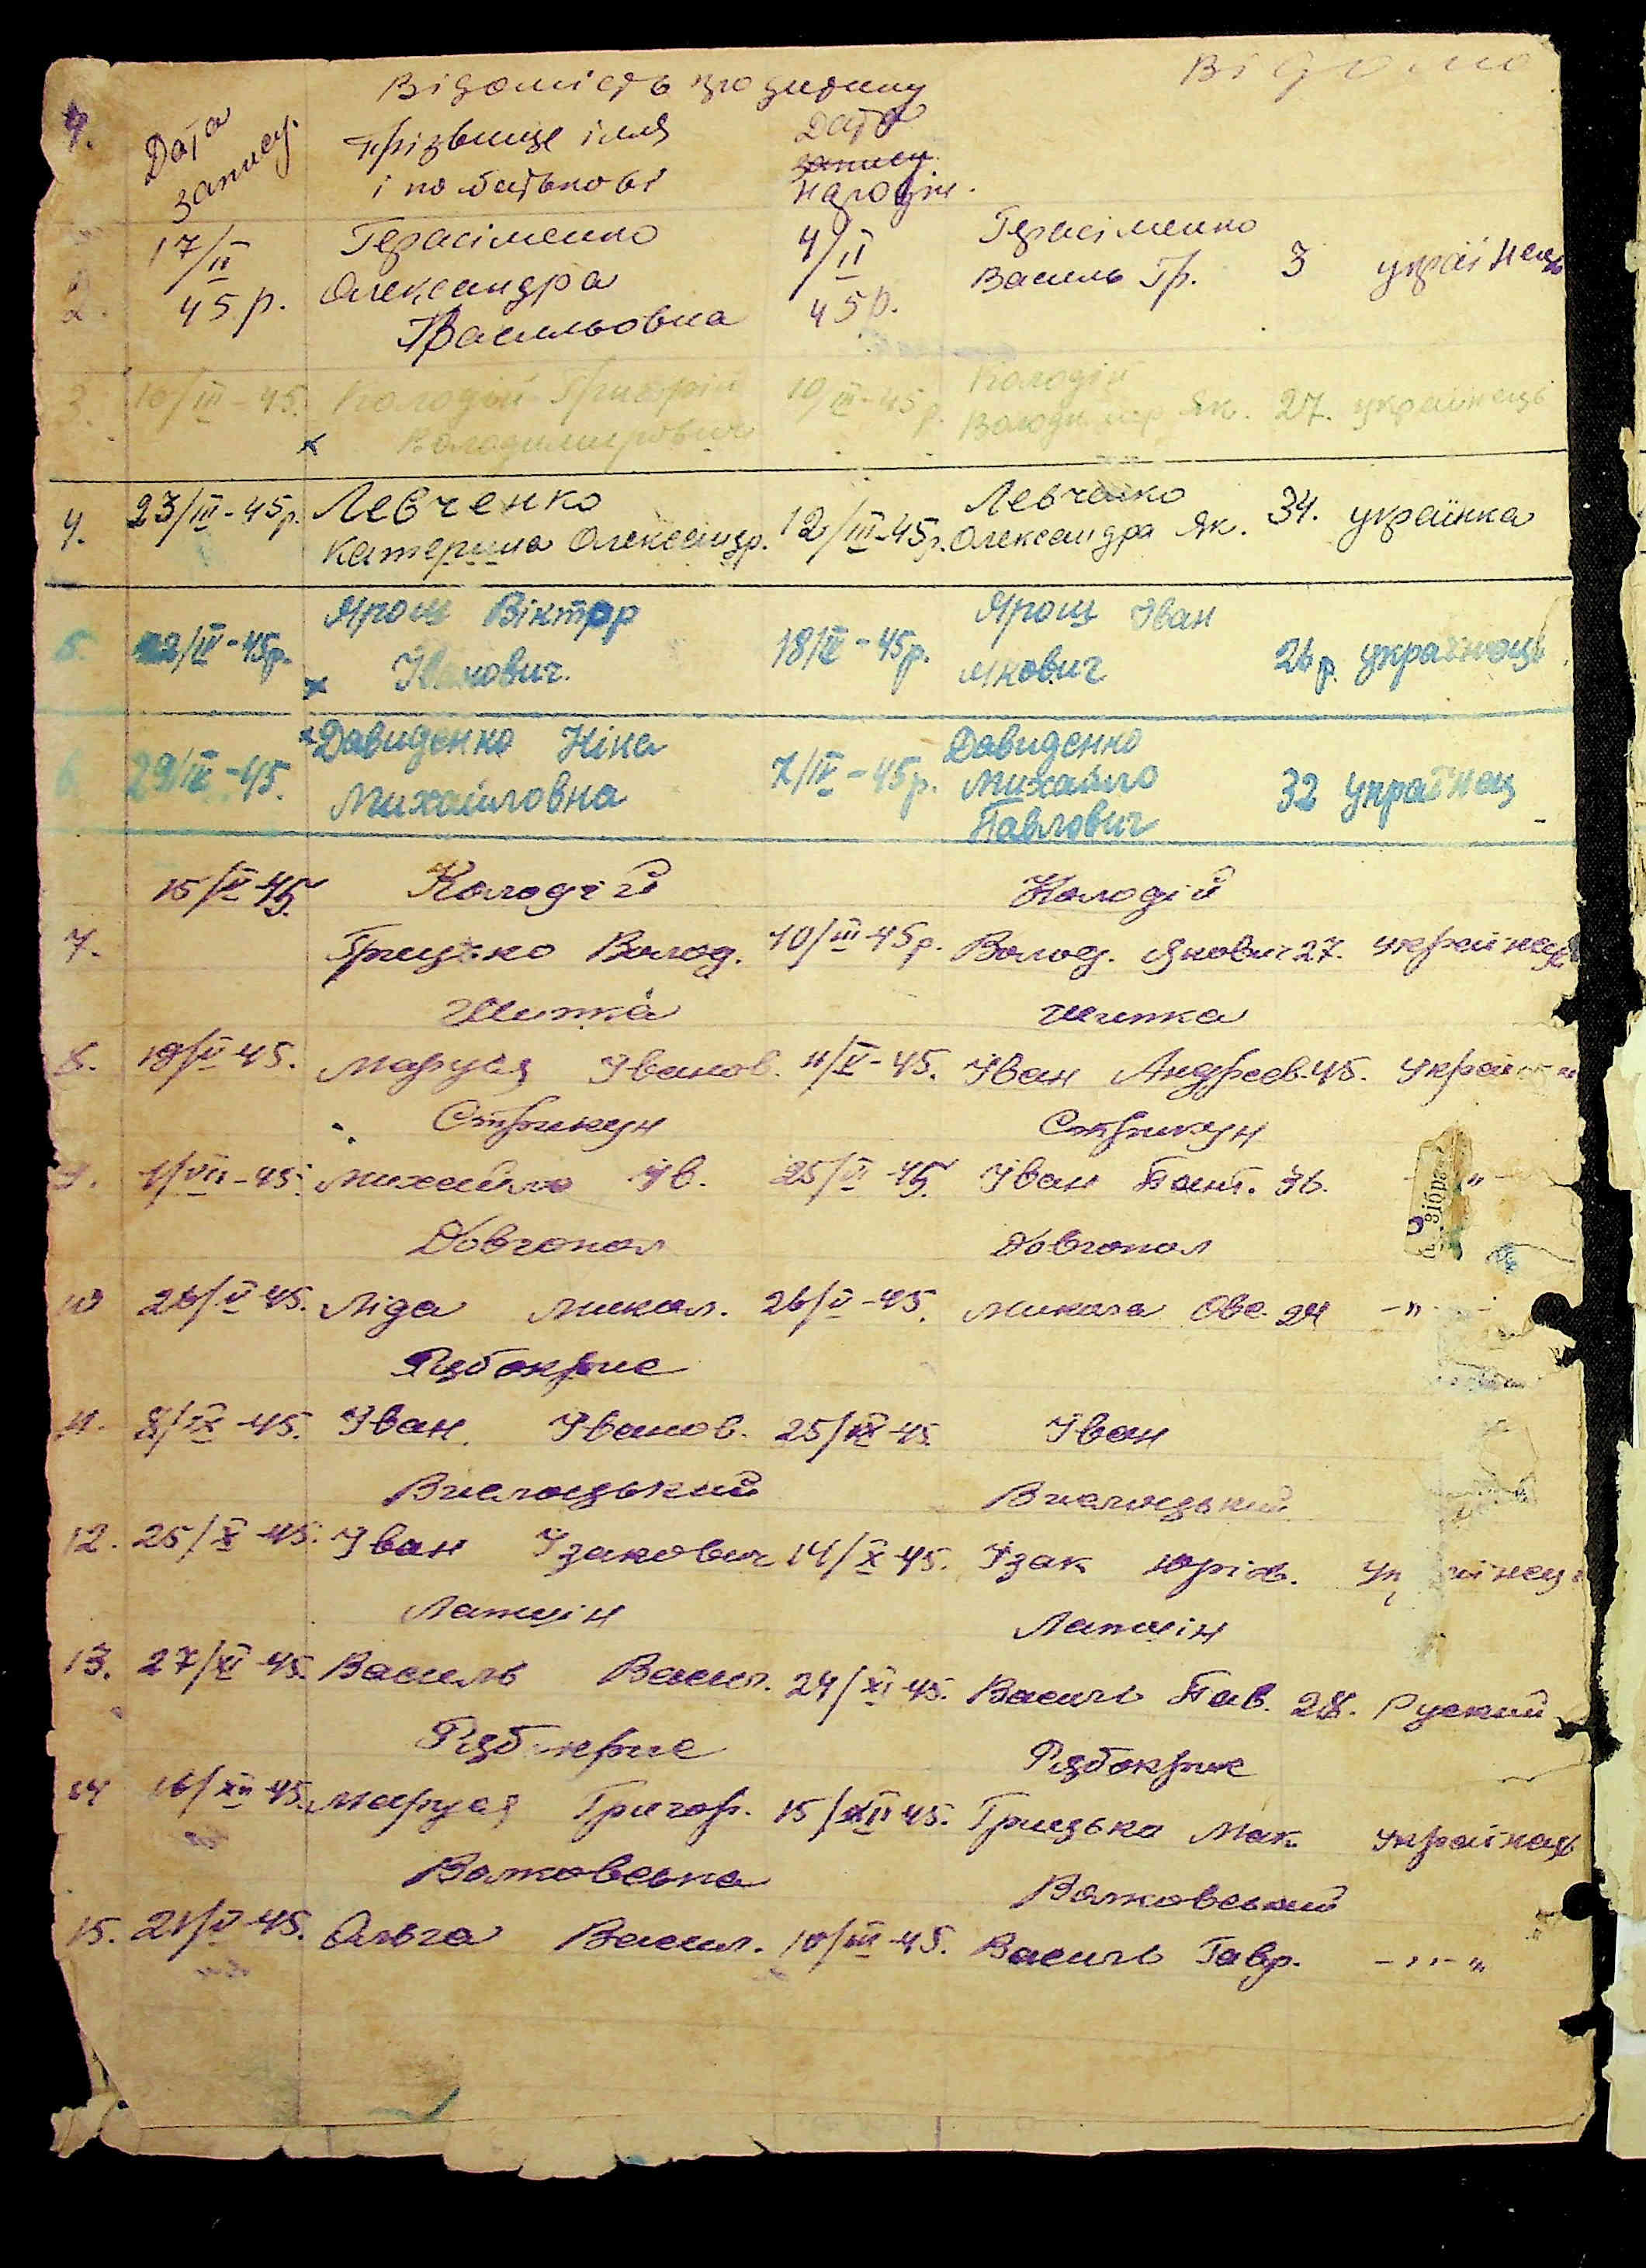 Відомість про дитину
Відомо
Ч. Дата запису. Прізвище імя і по батькові Дата запису народж.
17/II 45 р. Герасіменко Олександра Васильовна 4/II 45 р. Герасіменко Василь Гр. 3 українець
2.
3. 10/III-45. Колодій Григорій Володимирович 10/III-45 р. Колодій Володимир Як. 27. українець
4. 23/III-45р. Левченко Катерина Олександр. 12/III-45р. Левченко Олександра Як. 34. українка
5. 22/IV-45р. Ярош Віктор Іванович. 18/IV-45р. Ярош Іван Якович 26 р. українець
6. 29/IV-45. Давиденко Ніна Михайловна 7/IV-45р. Давиденко Михайло Павлович 32 українец
15/V-45. Колодій Колодій
7. Грицько Волод. 10/III-45р. Волод. Якович 27. українець
Шипка Шипка
8. 19/V-45. Маруся Іванов. 11/V-45. Іван Андреев. 45.
Стрикун Стрикун
9. 1/VII-45. Михайло Ів. 25/VI-45. Іван Пант. 36. - " -
Довгопол Довгопол
10 26/V-45. Ліда Микол. 26/V-45. Микола Ове. 24 - "
Рябокрис
11. 8/IX-45. Іван Іванов. 25/IX-45. Іван
Вчелоцький Вчелоцький
12. 25/X-45. Іван Ізакович 14/X-45. Ізак Юрій.
Лапшін Лапшін
13. 27/XI-45. Василь Васил. 24/XI-45. Василь Пав. 28. Руский
Рябокрис Рябокрис
14 16/XII-45. Маруся Григор. 15/XII-45. Грицько Мак. українець
Волковська Волковський
15. 21/V-45. Ольга Васил. 10/III-45. Василь Гавр. - " - "